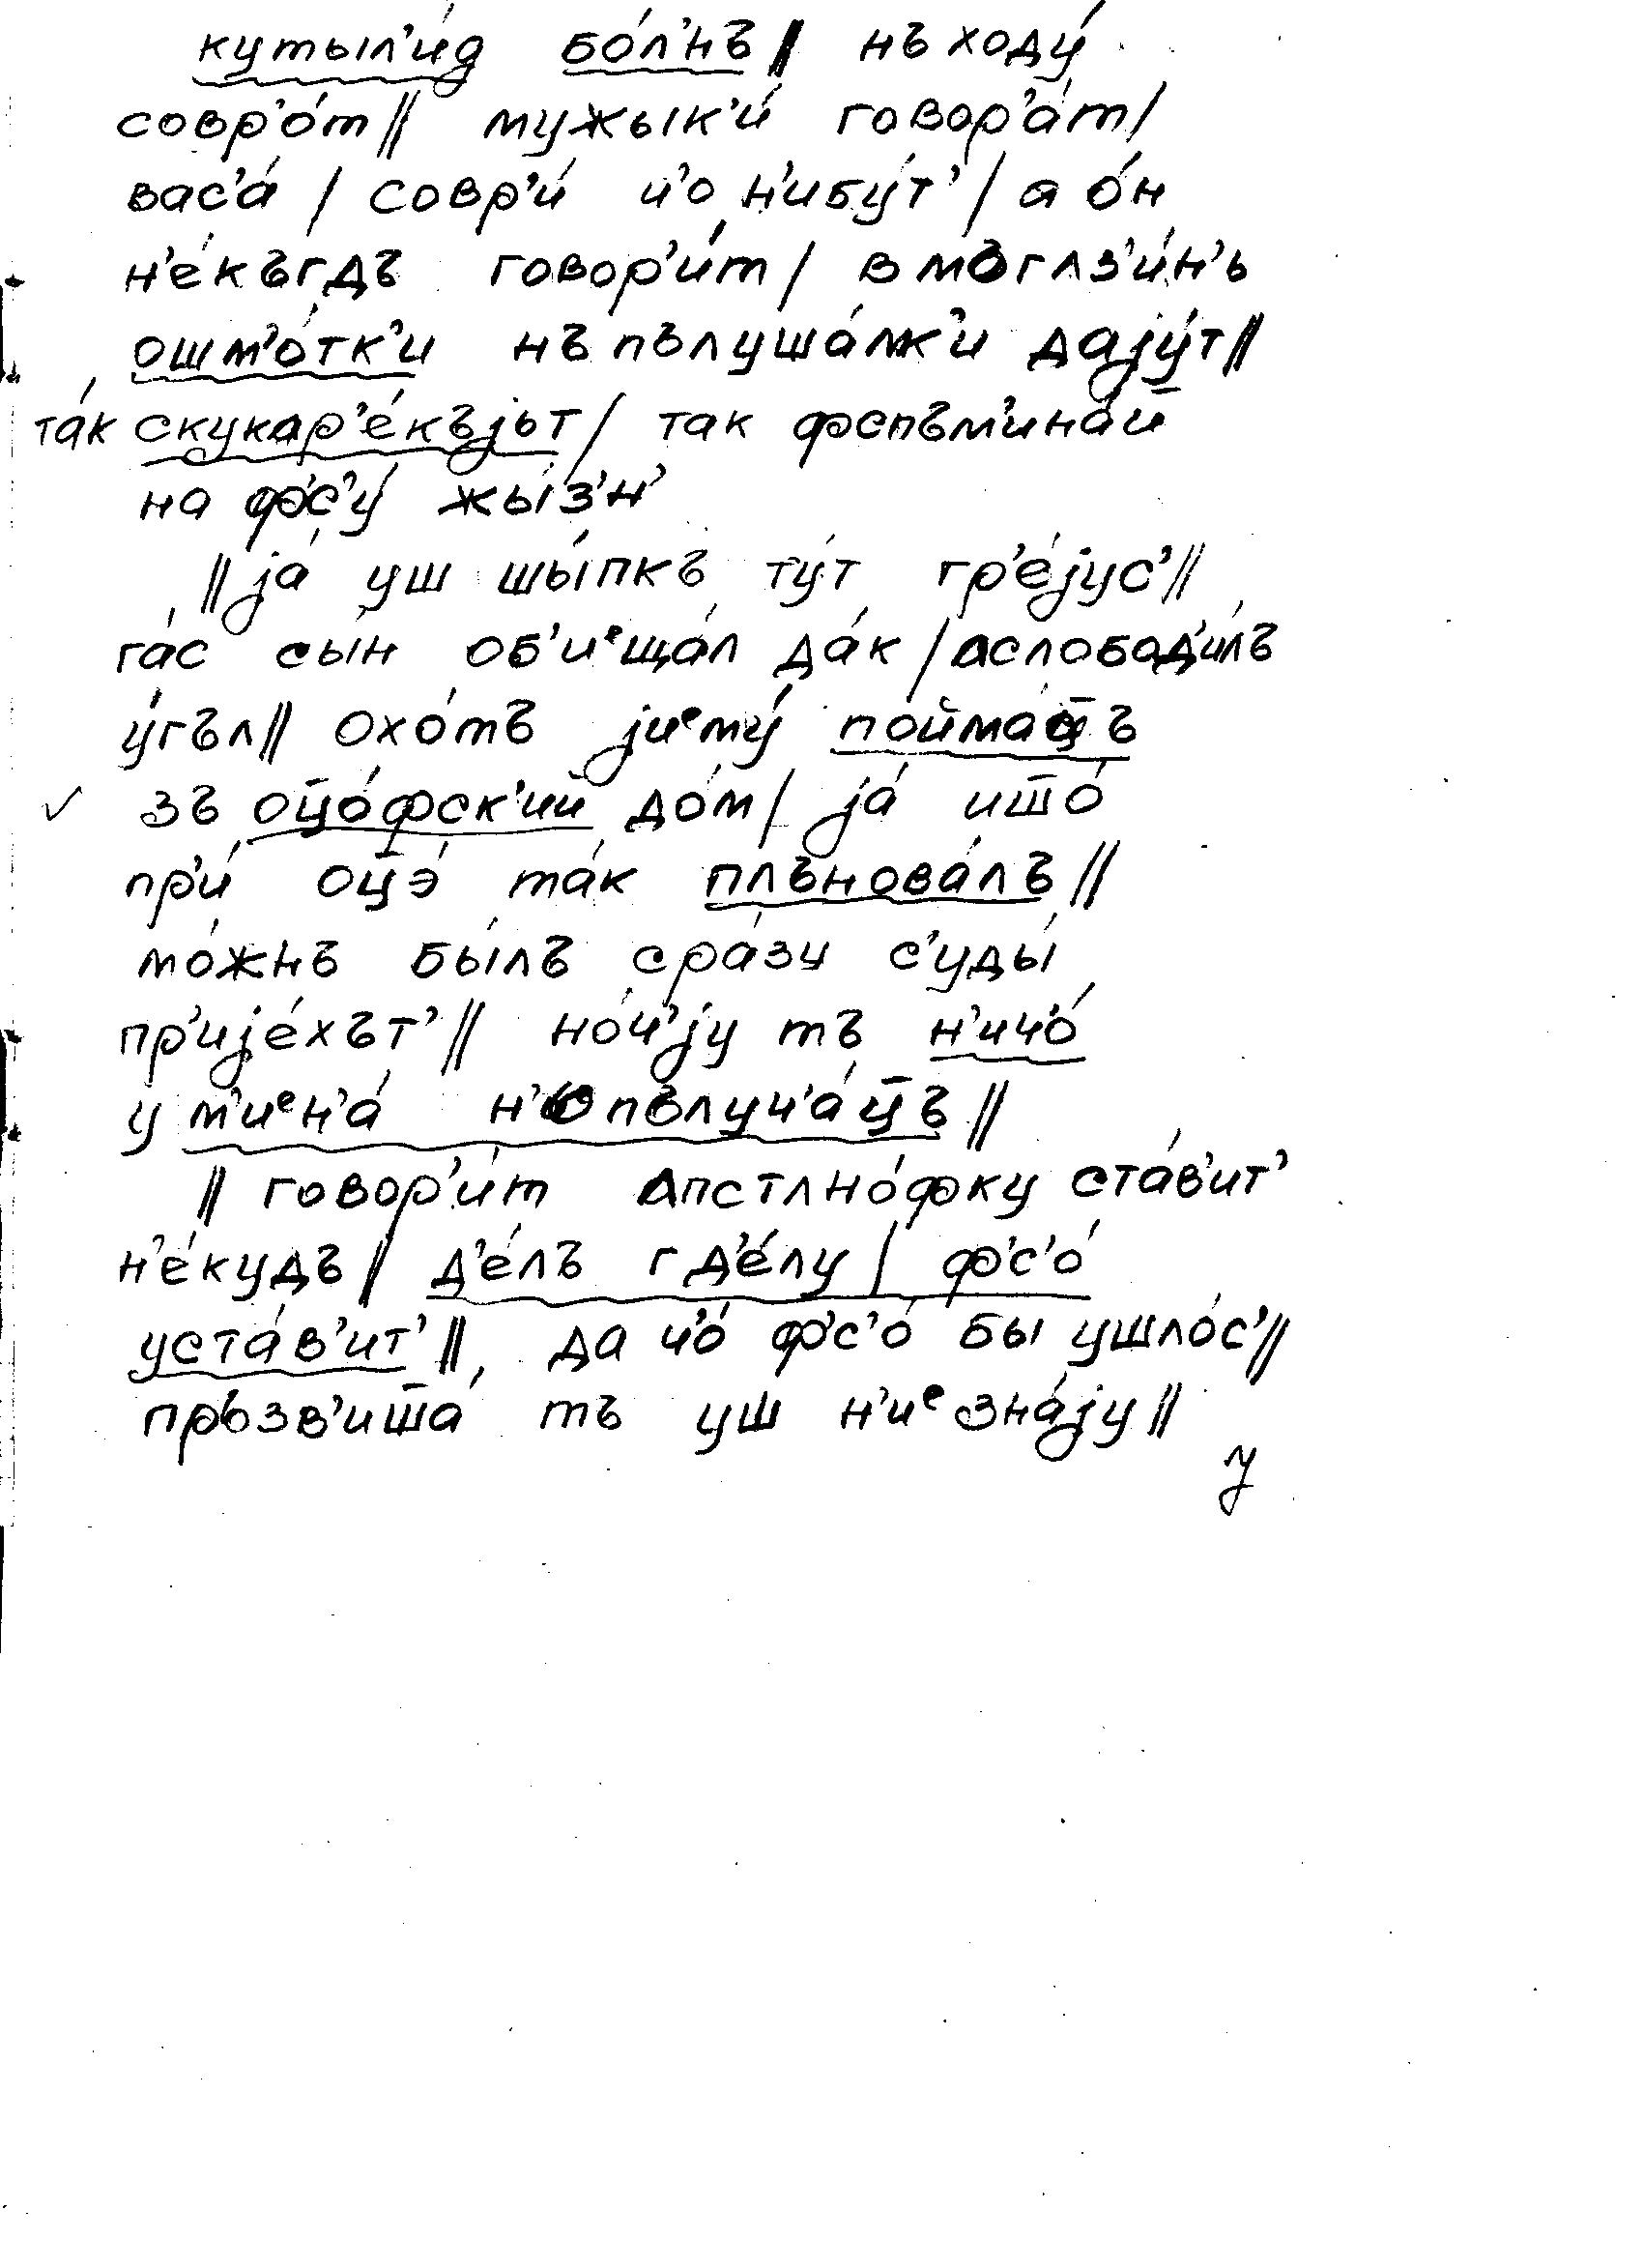 кутыл'и́д бо́л'нъ || нъ ходу́
совр'о́т || мужык'и́ говор'а́т /
вас'а́ / совр'и́ ч'о н'ибу́т' / а о́н
н'е́къгдъ говор'и́т / в мъглз'и́н'ь
ошм'о́тк'и нъ пълуша́лк'и дају́т ||
та́к скукар'е́къјьт / так фспъм'ина́й
на ф'с'у́ жы́з'н'
|| ја́ уш шы́пкъ ту́т гр'е́јус' ||
га́с сы́н об'иᵉща́л да́к / ʌслобод'и́лъ
у́гъл || охо́тъ јиᵉму́ пойма́ц̄ъ
✓ зъ оц̄о́фск'ий до́м / ја́ иш̄о́
пр'и́ оц̄э́ та́к плъновáлъ ||
мо́жнъ бы́лъ сра́зу с'уды́
пр'ијéхът' || но́ч'ју тъ н'ич'о́
у м'иᵉн'а́ пълуч'а́ц̄ъ ||
|| говор'и́т ʌпстʌно́фку ста́в'ит'
н'е́кудъ / д'е́лъ г д'е́лу / ф'с'о́
уста́в'ит' || да ч'о́ ф'с'о́ бы ушло́с' ||
прьзв'иш̄а́ тъ уш н'иᵉ зна́ју ||